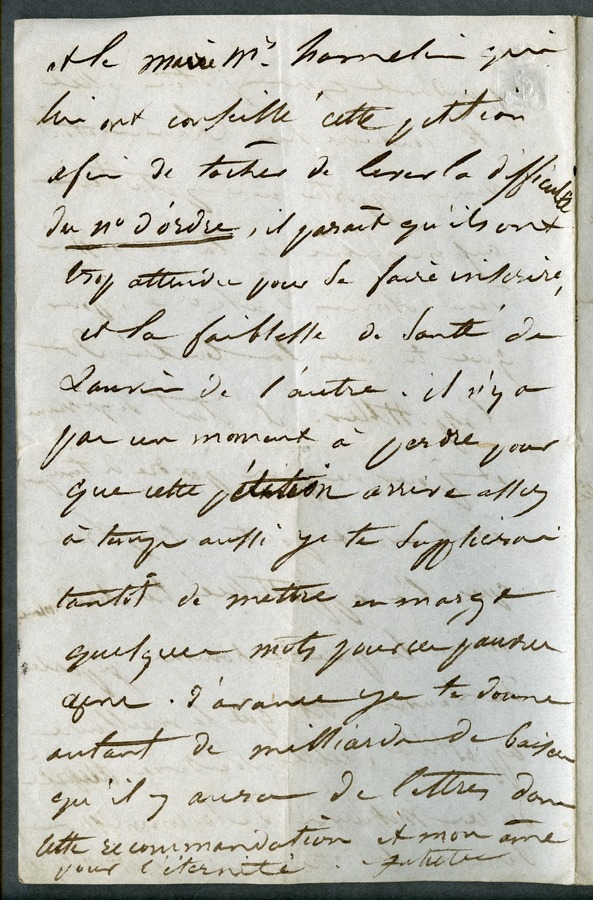 et le maire Mr. hamelin qui
lui ont conseillé cette pétition
afin de tâcher de lever la difficulté
du no d'ordre, il paraît qu'ils ont
trop attendu pour se faire inscrire,
et la faiblesse de santé de
l'un de l'autre. il n'y a
pas un moment à perdre pour
que cette pétition arrive assez
à temps aussi je te supplierai
tantôt de mettre en marge
quelques mots pour ces pauvres
gens. D'avance je te donne
autant de milliards de baisers
qu'il y aura de lettres dans
cette recommandation et mon âme
pour l'éternité. Juliette